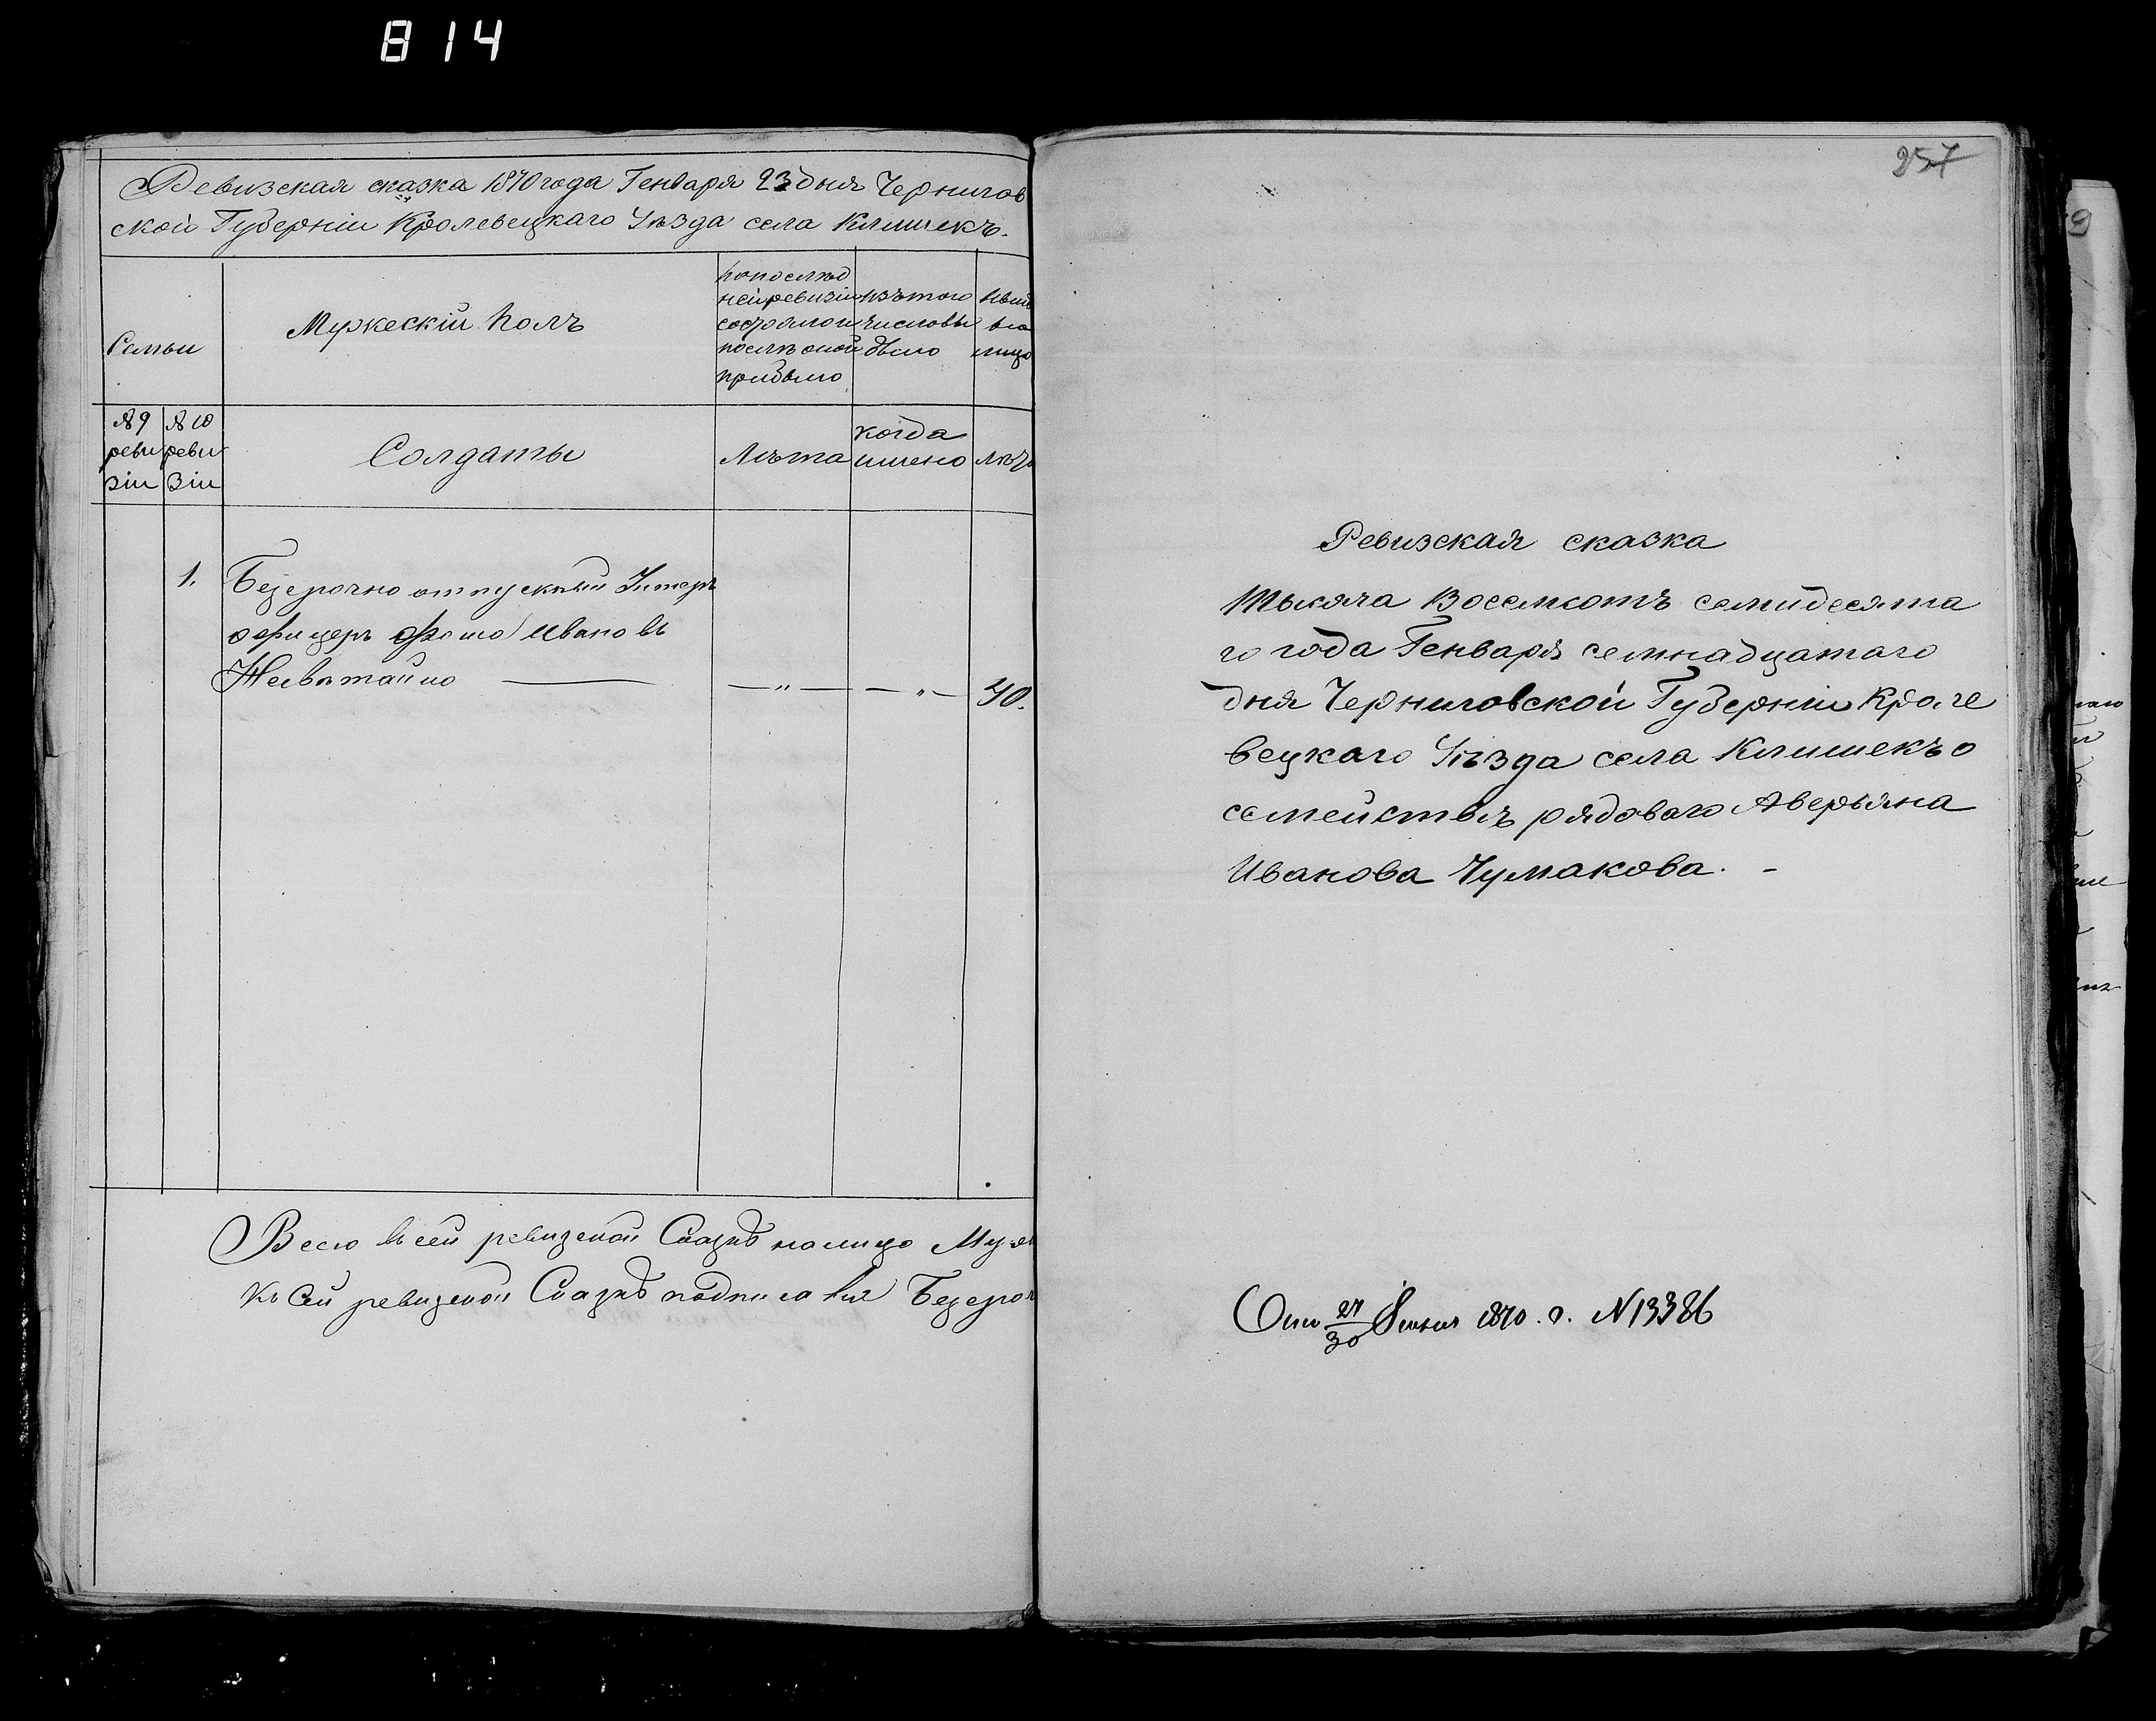 814
Ревизская сказка 1870 года Генваря 23 дня Чернигов
ской Губерніи Кролевецкаго Уѣзда села Клишекъ.
Семьи
Мужескій полъ
по послѣд
ней ревизіи
состояло и
послѣ оной
прибыло
изъ того
числа вы
было
нынѣ
на
лицо
№ 9
реви
зіи
№ 10
реви
зіи
Солдаты
Лѣта
когда
именно
лѣта
1.
Безсрочно отпускный Унтеръ
офицеръ Фома Ивановъ
Неевтайло
— " — — " — 40.
Всего въ сей ревизской Сказкѣ на лицо Муж
Къ сей ревизской Сказкѣ подписался Безсроч
257
Ревизская сказка
Тысяча Восемсотъ семидесята
го года Генваря семнадцатаго
дня Черниговской Губерніи Кроле
вецкаго Уѣзда села Клишекъ о
семействѣ рядоваго Аверьяна
Иванова Чумакова. -
27
30 Іюня 1870. г. N 13386